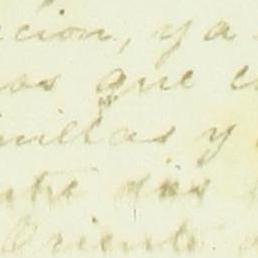 cion, ya
os que e
illas y
nte dos
Oriente